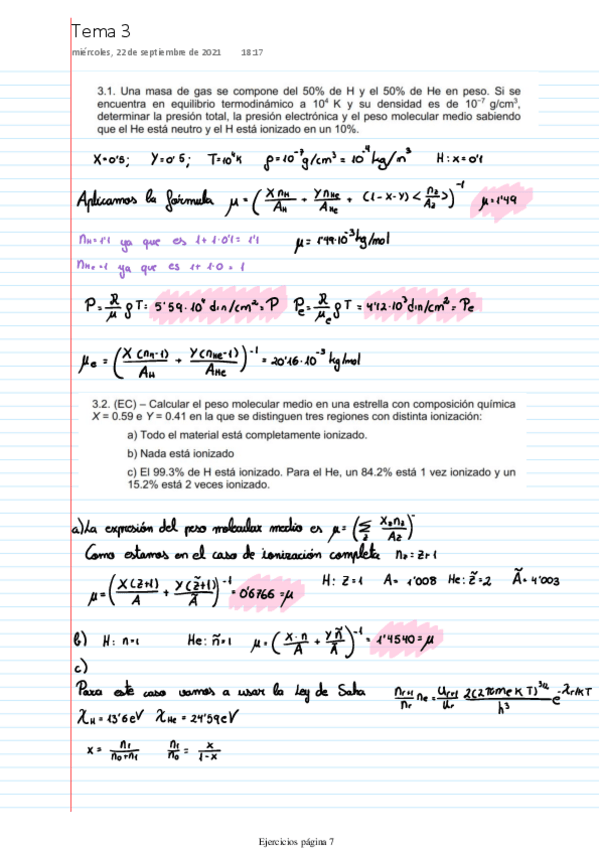 Tema 3
miércoles, 22 de septiembre de 2021 18:17
3.1. Una masa de gas se compone del 50% de H y el 50% de He en peso. Si se
encuentra en equilibrio termodinámico a 10⁴ K y su densidad es de 10⁻⁷ g/cm³,
determinar la presión total, la presión electrónica y el peso molecular medio sabiendo
que el He está neutro y el H está ionizado en un 10%.
X=0'5; Y=0'5; T=10⁴K ρ=10⁻⁷g/cm³ = 10⁻⁴kg/m³ H: x=0'1
Aplicamos la fórmula μ = (X n_H / A_H + Y n_He / A_He + (1-X-Y) < n_z / A_z >)⁻¹ μ=1'49
n_H=1'1 ya que es 1+1·0'1=1'1 μ=1'49·10⁻³kg/mol
n_He=1 ya que es 1+1·0=1
P = R/μ ρ T = 5'59·10⁴ din/cm² = P P_e = R/μ_e ρ T = 4'12·10³ din/cm² = P_e
μ_e = (X(n_H-1)/A_H + Y(n_He-1)/A_He)⁻¹ = 20'16·10⁻³ kg/mol
3.2. (EC) – Calcular el peso molecular medio en una estrella con composición química
X = 0.59 e Y = 0.41 en la que se distinguen tres regiones con distinta ionización:
a) Todo el material está completamente ionizado.
b) Nada está ionizado
c) El 99.3% de H está ionizado. Para el He, un 84.2% está 1 vez ionizado y un
15.2% está 2 veces ionizado.
a) La expresión del peso molecular medio es μ = (Σ_z X_z n_z / A_z)⁻
Como estamos en el caso de ionización completa n_z = z+1
μ = (X(z+1)/A + Y(z̃+1)/Ã)⁻¹ = 0'6766 = μ H: z=1 A=1'008 He: z̃=2 Ã=4'003
b) H: n=1 He: ñ=1 μ = (X·n/A + Yñ/Ã)⁻¹ = 1'4540 = μ
c)
Para este caso vamos a usar la Ley de Saha n_{r+1}/n_r n_e = u_{r+1}/u_r 2(2πm_e K T)^{3/2}/h³ e^{-χ_r/KT}
χ_H = 13'6eV χ_He = 24'59eV
x = n_1/(n_0+n_1) n_1/n_0 = x/(1-x)
Ejercicios página 7